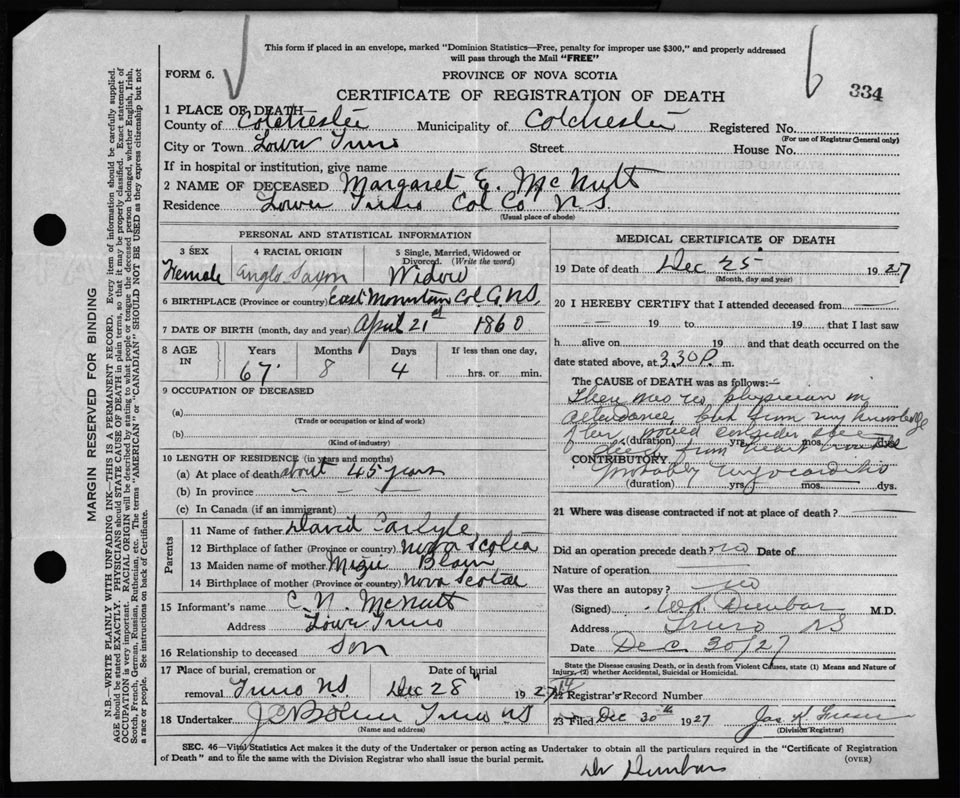 This form if placed in an envelope, marked "Dominion Statistics—Free, penalty for improper use $300," and properly addressed
will pass through the Mail "FREE"
FORM 6.
PROVINCE OF NOVA SCOTIA
334
CERTIFICATE OF REGISTRATION OF DEATH
1 PLACE OF DEATH
County of Colchester Municipality of Colchester Registered No.
(For use of Registrar General only)
City or Town Lower Truro Street House No.
If in hospital or institution, give name
2 NAME OF DECEASED Margaret E. McNutt
Residence Lower Truro Col Co N.S.
(Usual place of abode)
PERSONAL AND STATISTICAL INFORMATION
3 SEX 4 RACIAL ORIGIN 5 Single, Married, Widowed or Divorced. (Write the word)
Female Anglo Saxon Widow
6 BIRTHPLACE (Province or country) East Mountain Col. Co. N.S.
7 DATE OF BIRTH (month, day and year) April 21st 1860
8 AGE IN Years Months Days If less than one day,
67 8 4 hrs. or min.
9 OCCUPATION OF DECEASED
(a)
(Trade or occupation or kind of work)
(b)
(Kind of industry)
10 LENGTH OF RESIDENCE (in years and months)
(a) At place of death about 45 years
(b) In province — — —
(c) In Canada (if an immigrant)
Parents
11 Name of father David Carlyle
12 Birthplace of father (Province or country) Nova Scotia
13 Maiden name of mother Blair
14 Birthplace of mother (Province or country) Nova Scotia
15 Informant's name C. N. McNutt
Address Lower Truro
16 Relationship to deceased Son
17 Place of burial, cremation or removal Truro N.S. Date of burial Dec 28 1927
18 Undertaker Truro NS
(Name and address)
MEDICAL CERTIFICATE OF DEATH
19 Date of death Dec 25 1927
(Month, day and year)
20 I HEREBY CERTIFY that I attended deceased from —
— 19 to 19 that I last saw
h alive on 19 and that death occurred on the
date stated above, at 3.30 P. m.
The CAUSE of DEATH was as follows:—
There was no physician in
attendance but from my knowledge
of her would consider she
(duration) yrs. mos. ds
died from heart trouble
CONTRIBUTORY
probably myocarditis
(duration) yrs. mos. dys.
21 Where was disease contracted if not at place of death? —
Did an operation precede death? no Date of
Nature of operation
Was there an autopsy? no
(Signed) W.R. Dunbar M.D.
Address Truro NS
Date Dec. 30/27
State the Disease causing Death, or in death from Violent Causes, state (1) Means and Nature of
Injury, (2) whether Accidental, Suicidal or Homicidal.
22 Registrar's Record Number
23 Filed Dec 30th 1927 Jas K Fraser
(Division Registrar)
SEC. 46—Vital Statistics Act makes it the duty of the Undertaker or person acting as Undertaker to obtain all the particulars required in the "Certificate of Registration
of Death" and to file the same with the Division Registrar who shall issue the burial permit.
(OVER)
Dr Dunbar
MARGIN RESERVED FOR BINDING
N.B.—WRITE PLAINLY WITH UNFADING INK—THIS IS A PERMANENT RECORD. Every item of information should be carefully supplied.
AGE should be stated EXACTLY. PHYSICIANS should STATE CAUSE OF DEATH in plain terms, so that it may be properly classified. Exact statement of
OCCUPATION is very important. RACIAL ORIGIN will be described by stating to what people or tongue the deceased person belonged, whether English, Irish,
Scotch, French, German, Russian, Ruthenian, etc. The terms "AMERICAN" or "CANADIAN" SHOULD NOT BE USED as they express citizenship but not
a race or people. See instructions on back of Certificate.